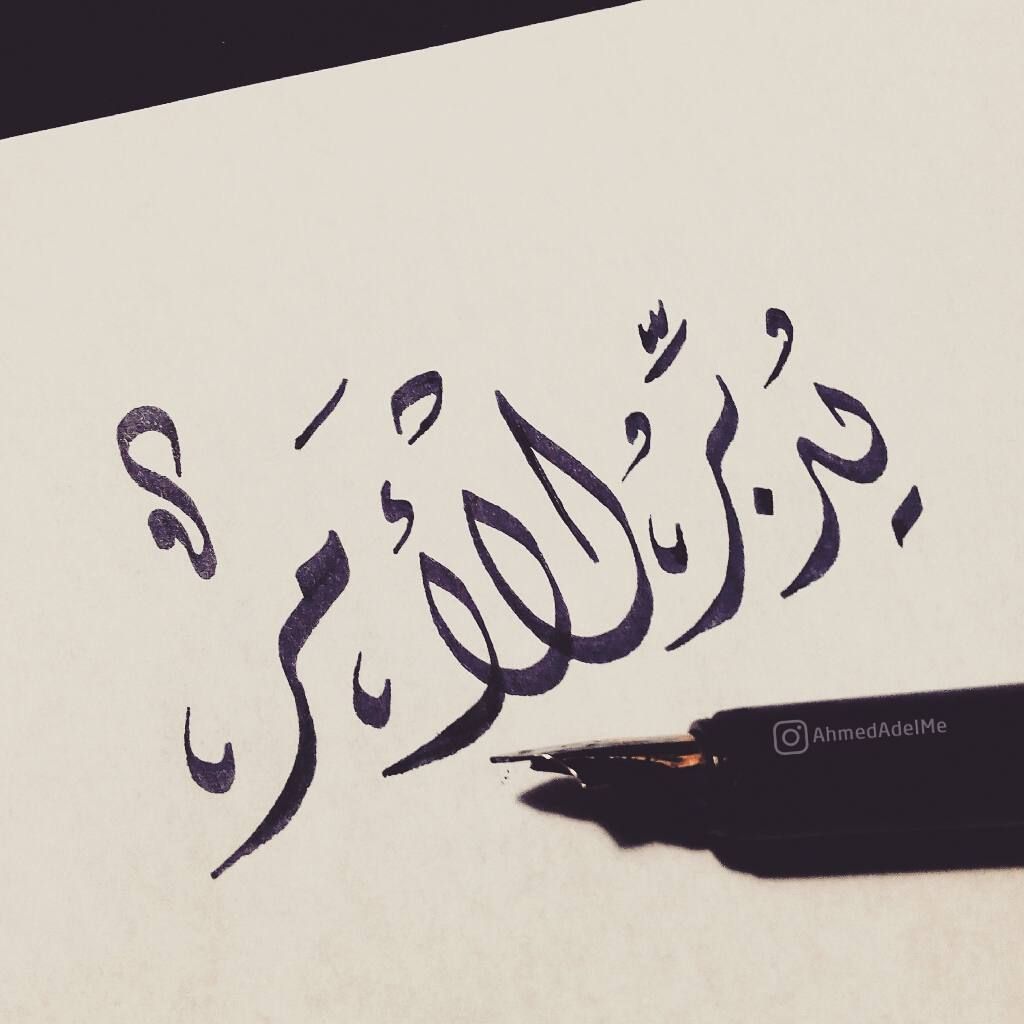 يُدبِّرُ الأمرَ
AhmedAdelMe